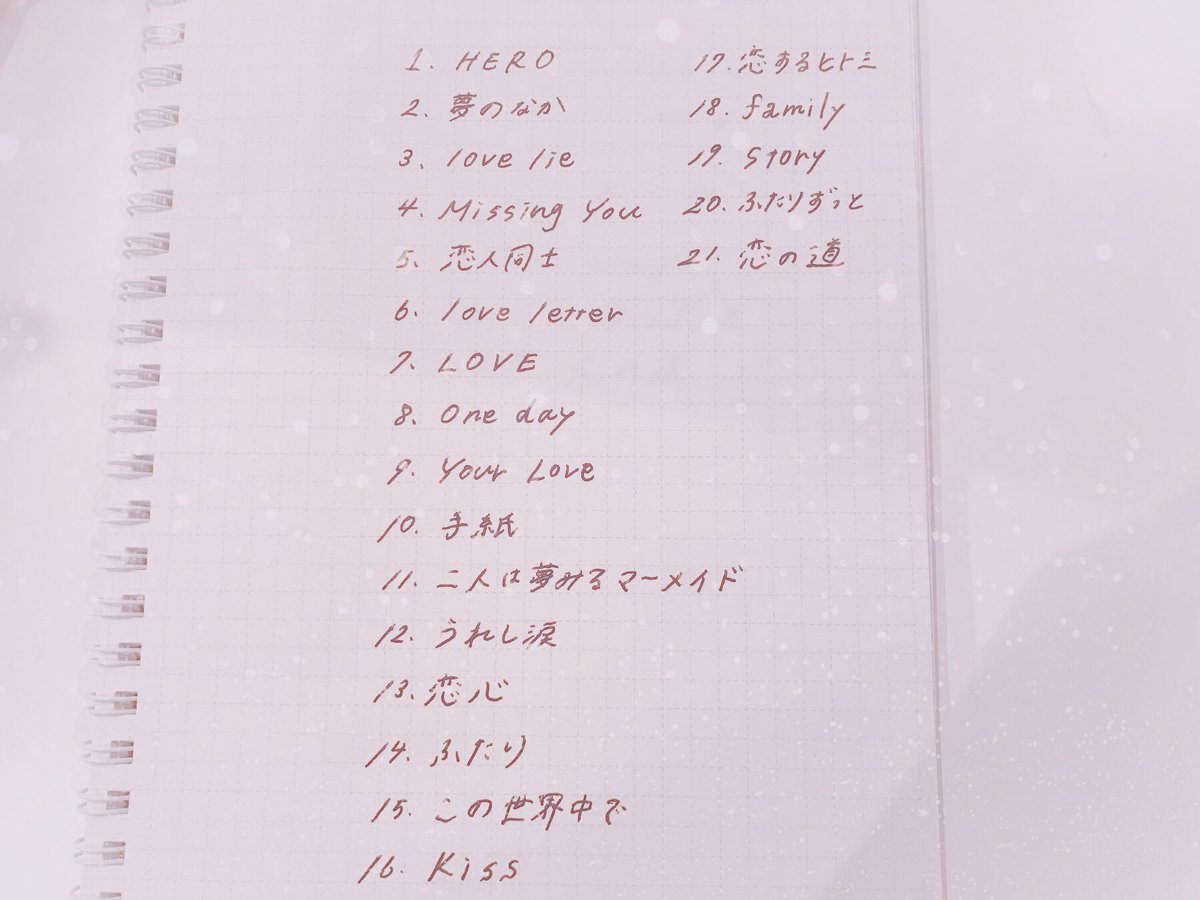 1. HERO
2. 夢のなか
3. love lie
4. Missing You
5. 恋人同士
6. love letter
7. LOVE
8. One day
9. Your Love
10. 手紙
11. 二人は夢みるマーメイド
12. うれし涙
13. 恋心
14. ふたり
15. この世界中で
16. Kiss
17. 恋するヒトミ
18. family
19. story
20. ふたりずっと
21. 恋の道